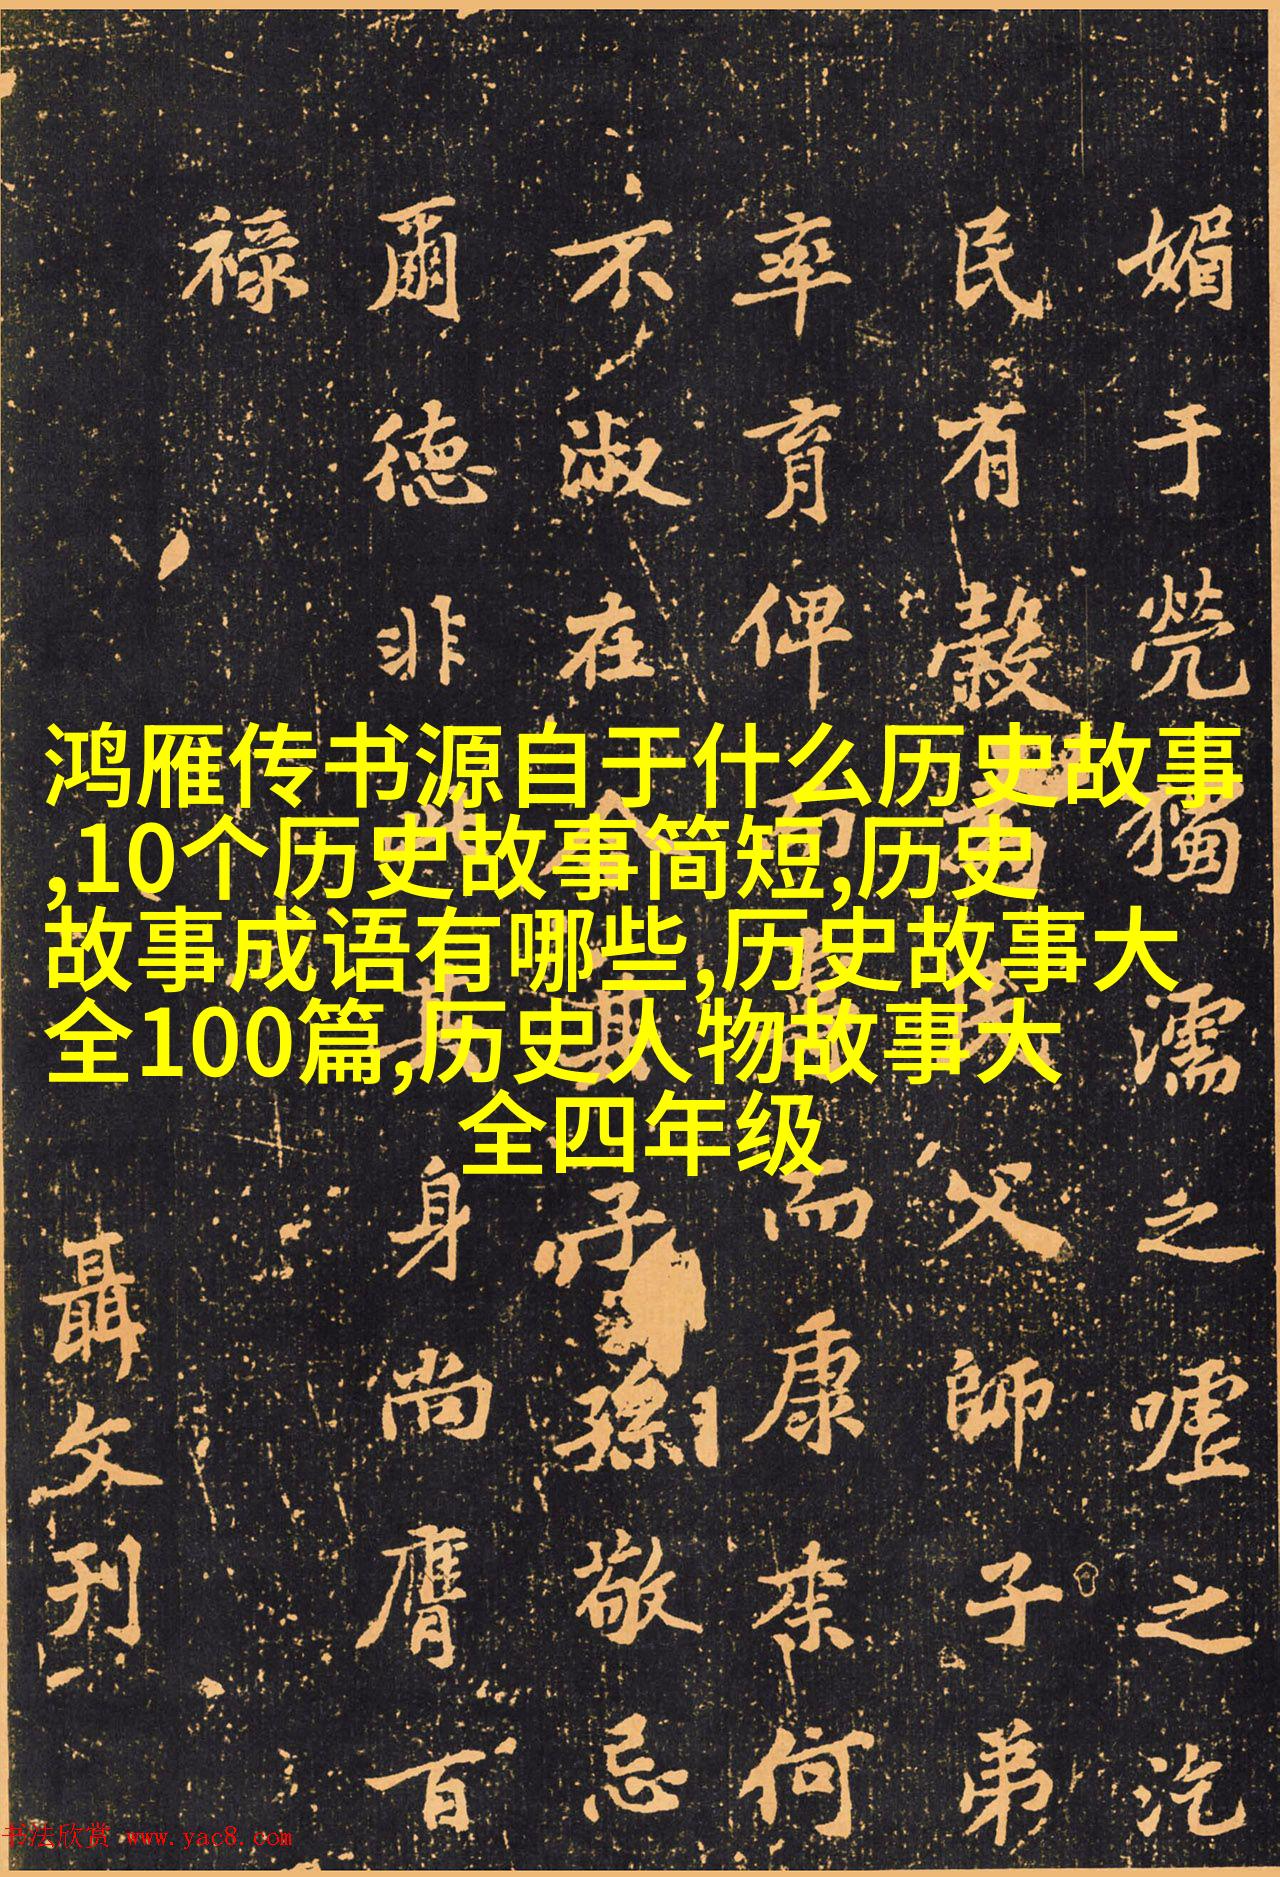 鸿雁传书源自于什么历史故事
,10个历史故事简短,历史
故事成语有哪些,历史故事大
全100篇,历史人物故事大
全四年级
媚于茕獨濡之嘘之汔
民有穀父師子弟
率育俾而康来何
不淑在子孫敬忌
爾德非身尚膺百
禄
聶文刊
书法欣赏 www.yac8.com